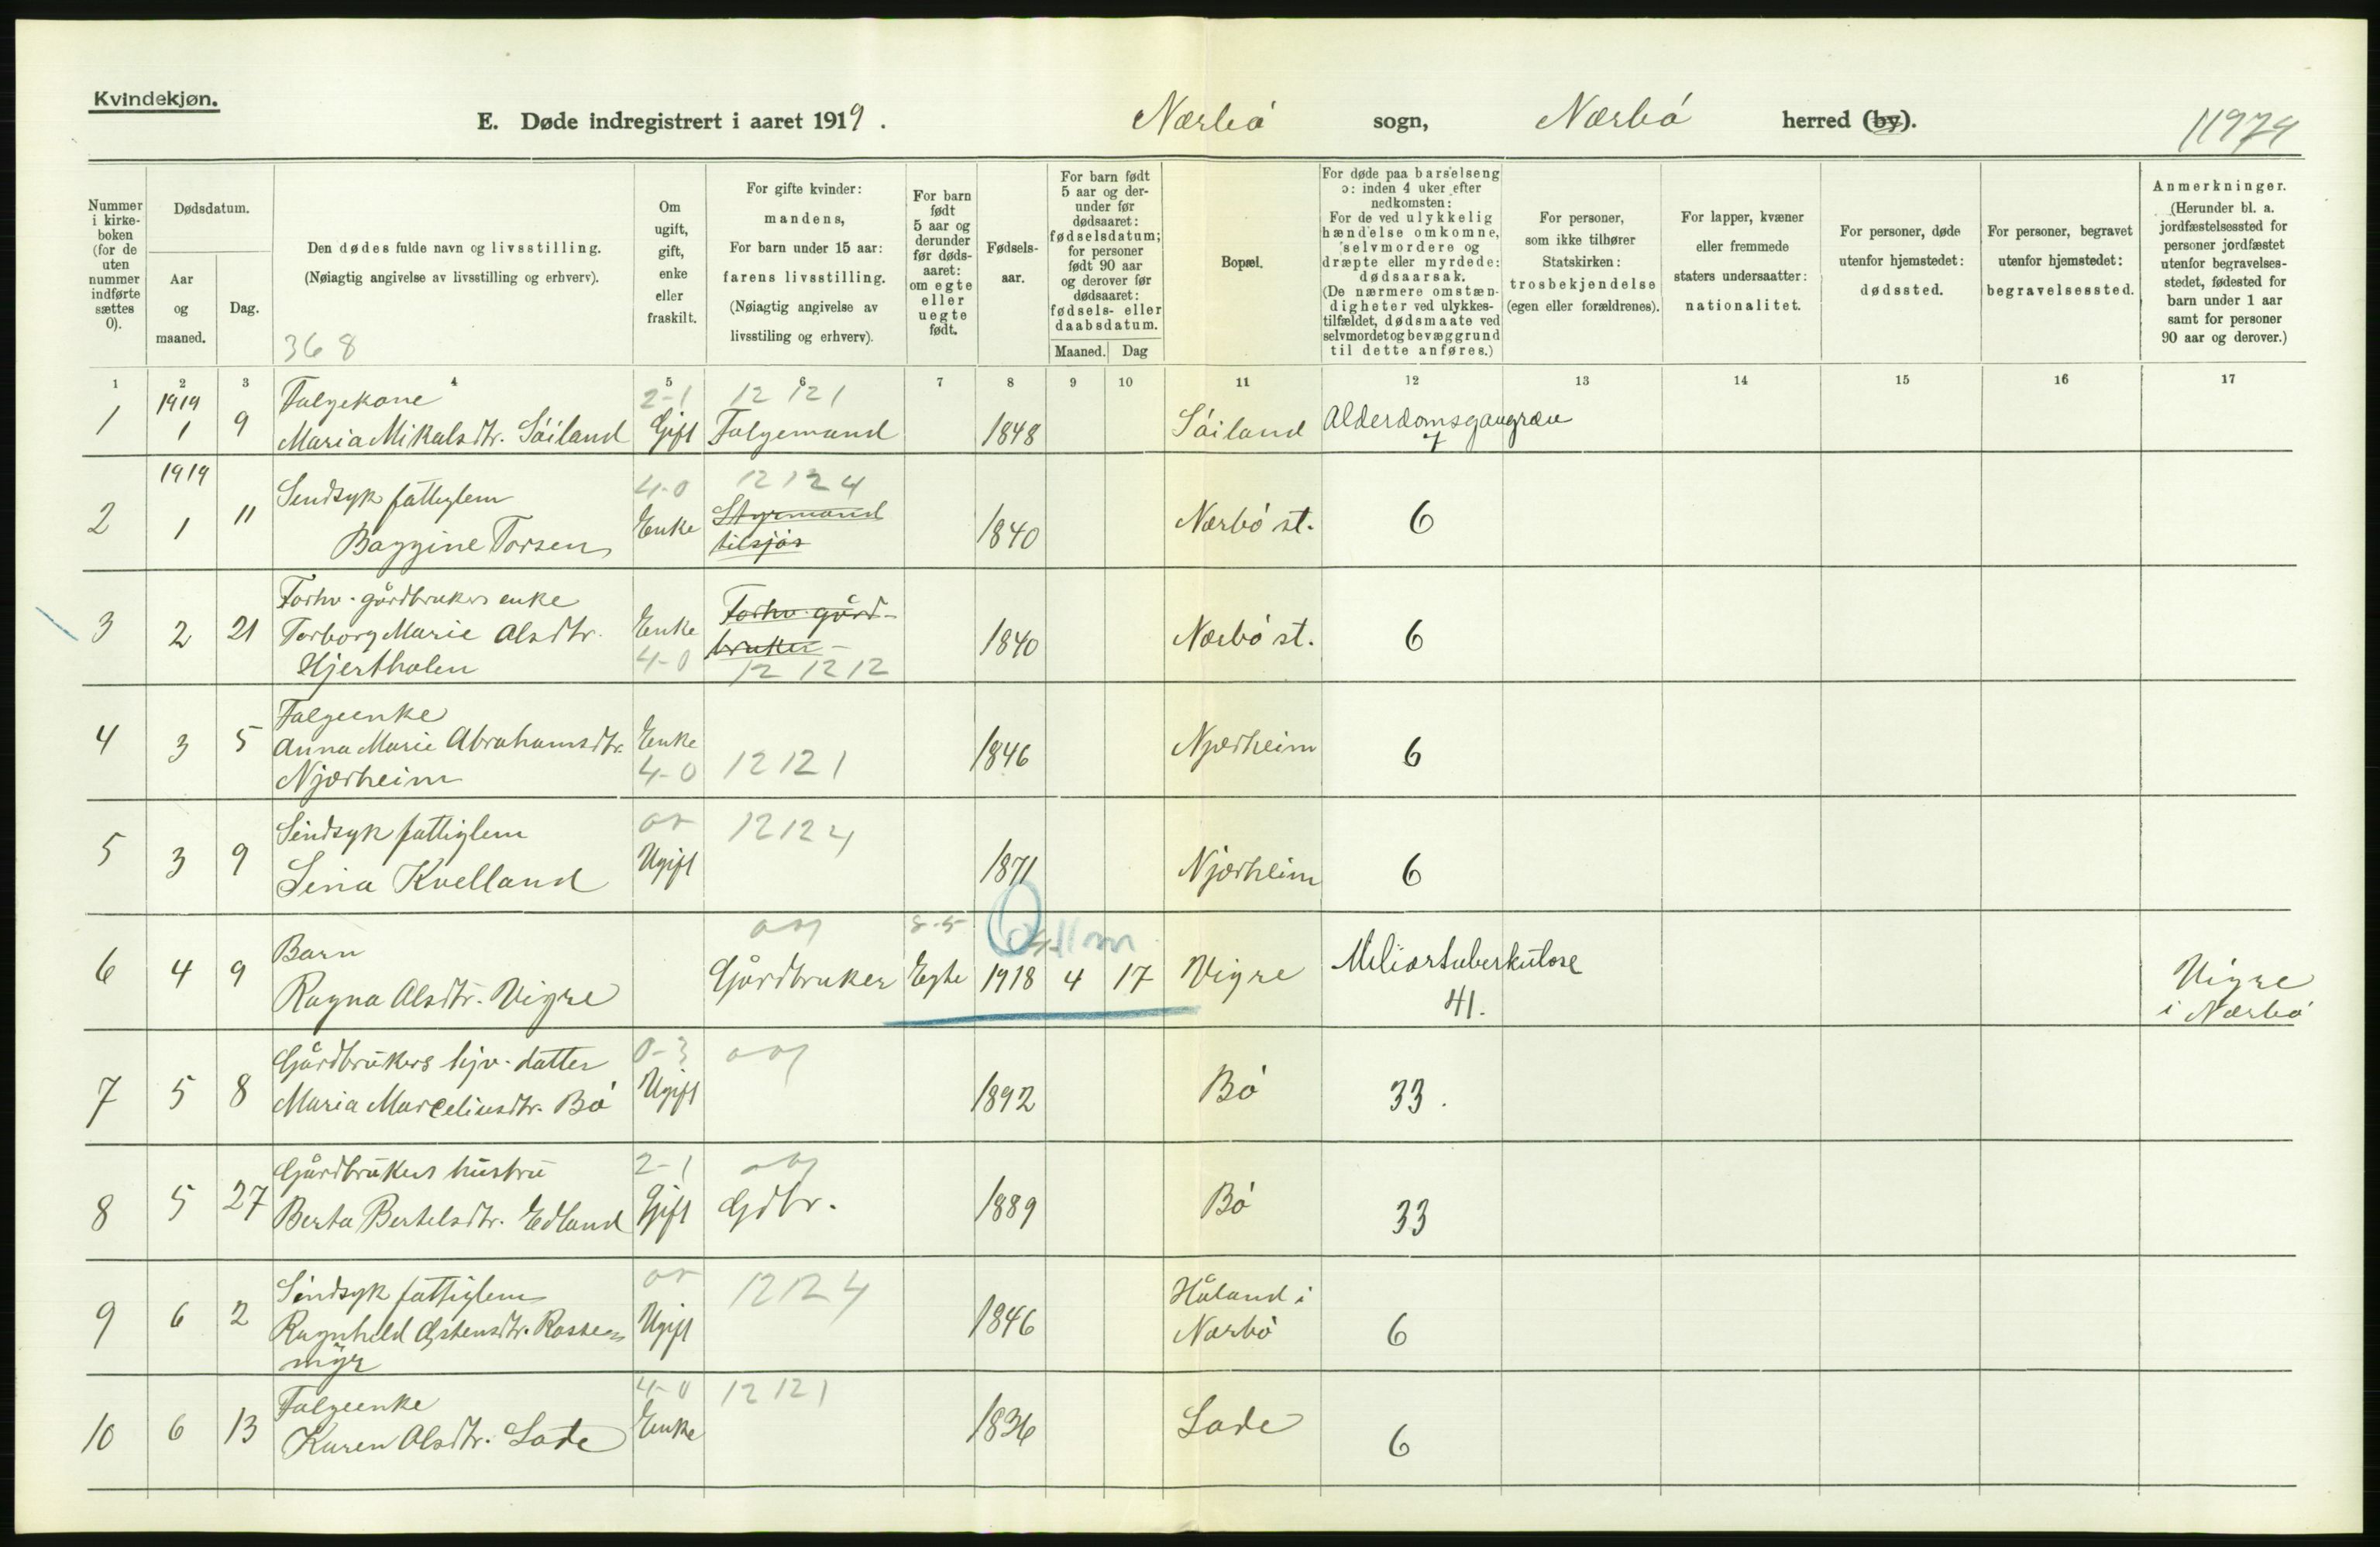 Kvindekjøn.
E. Døde indregistrert i aaret 1919. Nærbø sogn, Nærbø herred (by). 11979
Nummer i kirke-boken (for de uten nummer indførte sættes 0).
Dødsdatum.
Aar og maaned.
Dag.
Den dødes fulde navn og livsstilling.
(Nøiagtig angivelse av livsstilling og erhverv).
368
Om ugift, gift, enke eller fraskilt.
For gifte kvinder:
mandens,
For barn under 15 aar:
farens livsstilling.
(Nøiagtig angivelse av
livsstiling og erhverv).
For barn født 5 aar og derunder før døds-aaret: om egte eller uegte født.
Fødsels-aar.
For barn født 5 aar og der-under før dødsaaret: fødselsdatum; for personer født 90 aar og derover før dødsaaret: fødsels- eller daabsdatum.
Maaned. Dag
Bopæl.
For døde paa barselseng
ɔ: inden 4 uker efter
nedkomsten:
For de ved ulykkelig
hændelse omkomne,
selvmordere og
dræpte eller myrdede:
dødsaarsak.
(De nærmere omstæn-
digheter ved ulykkes-
tilfældet, dødsmaate ved
selvmordet og bevæggrund
til dette anføres.)
For personer,
som ikke tilhører
Statskirken:
trosbekjendelse
(egen eller forældrenes).
For lapper, kvæner
eller fremmede
staters undersaatter:
nationalitet.
For personer, døde
utenfor hjemstedet:
dødssted.
For personer, begravet
utenfor hjemstedet:
begravelsessted.
Anmerkninger.
(Herunder bl. a.
jordfæstelsessted for
personer jordfæstet
utenfor begravelses-
stedet, fødested for
barn under 1 aar
samt for personer
90 aar og derover.)
1 2 3 4 5 6 7 8 9 10 11 12 13 14 15 16 17
1919 Folgekone 2-1 12 12 1
1 1 9 Maria Mikalsdtr. Söiland Gift Folgemand 1848 Söiland Alderdomsgangræn
7
1919 Sindsyk fattiglem 4-0 12 12 4
2 1 11 Baggine Torsen Enke Styrmand tilsjøs 1840 Nærbø st. 6
Forhv. gårdbrukers enke Forhv. gård-
3 2 21 Torborg Marie Olsdtr. Enke bruker 1840 Nærbø st. 6
Hjertholen 4-0 12 12 12
Folgeenke
4 3 5 Anna Marie Abrahamsdtr. Enke 1846 Njærheim 6
Njærheim 4-0 12 12 1
Sindsyk fattiglem 12 12 4
5 3 9 Sina Kvelland Ugift 1871 Njærheim 6
Barn 8-5 11 m
6 4 9 Ragna Olsdtr. Vigre Gårdbruker Egte 1918 4 17 Vigre Miliærtuberkulose Vigre
41. i Nærbø
Gårdbrukers hjv. datter 0-3
7 5 8 Maria Marceliusdtr. Bø Ugift 1892 Bø 33.
Gårdbrukers hustru 2-1
8 5 27 Berta Bertelsdtr. Edland Gift Gdbr. 1889 Bø 33
Sindsyk fattiglem 12 12 4 Håland i
9 6 2 Ragnhild Ugift 1846 Nærbø 6
myr
Folgeenke 4-0 12 12 1
10 6 13 Karen Olsdtr. Lode Enke 1836 Lode 6